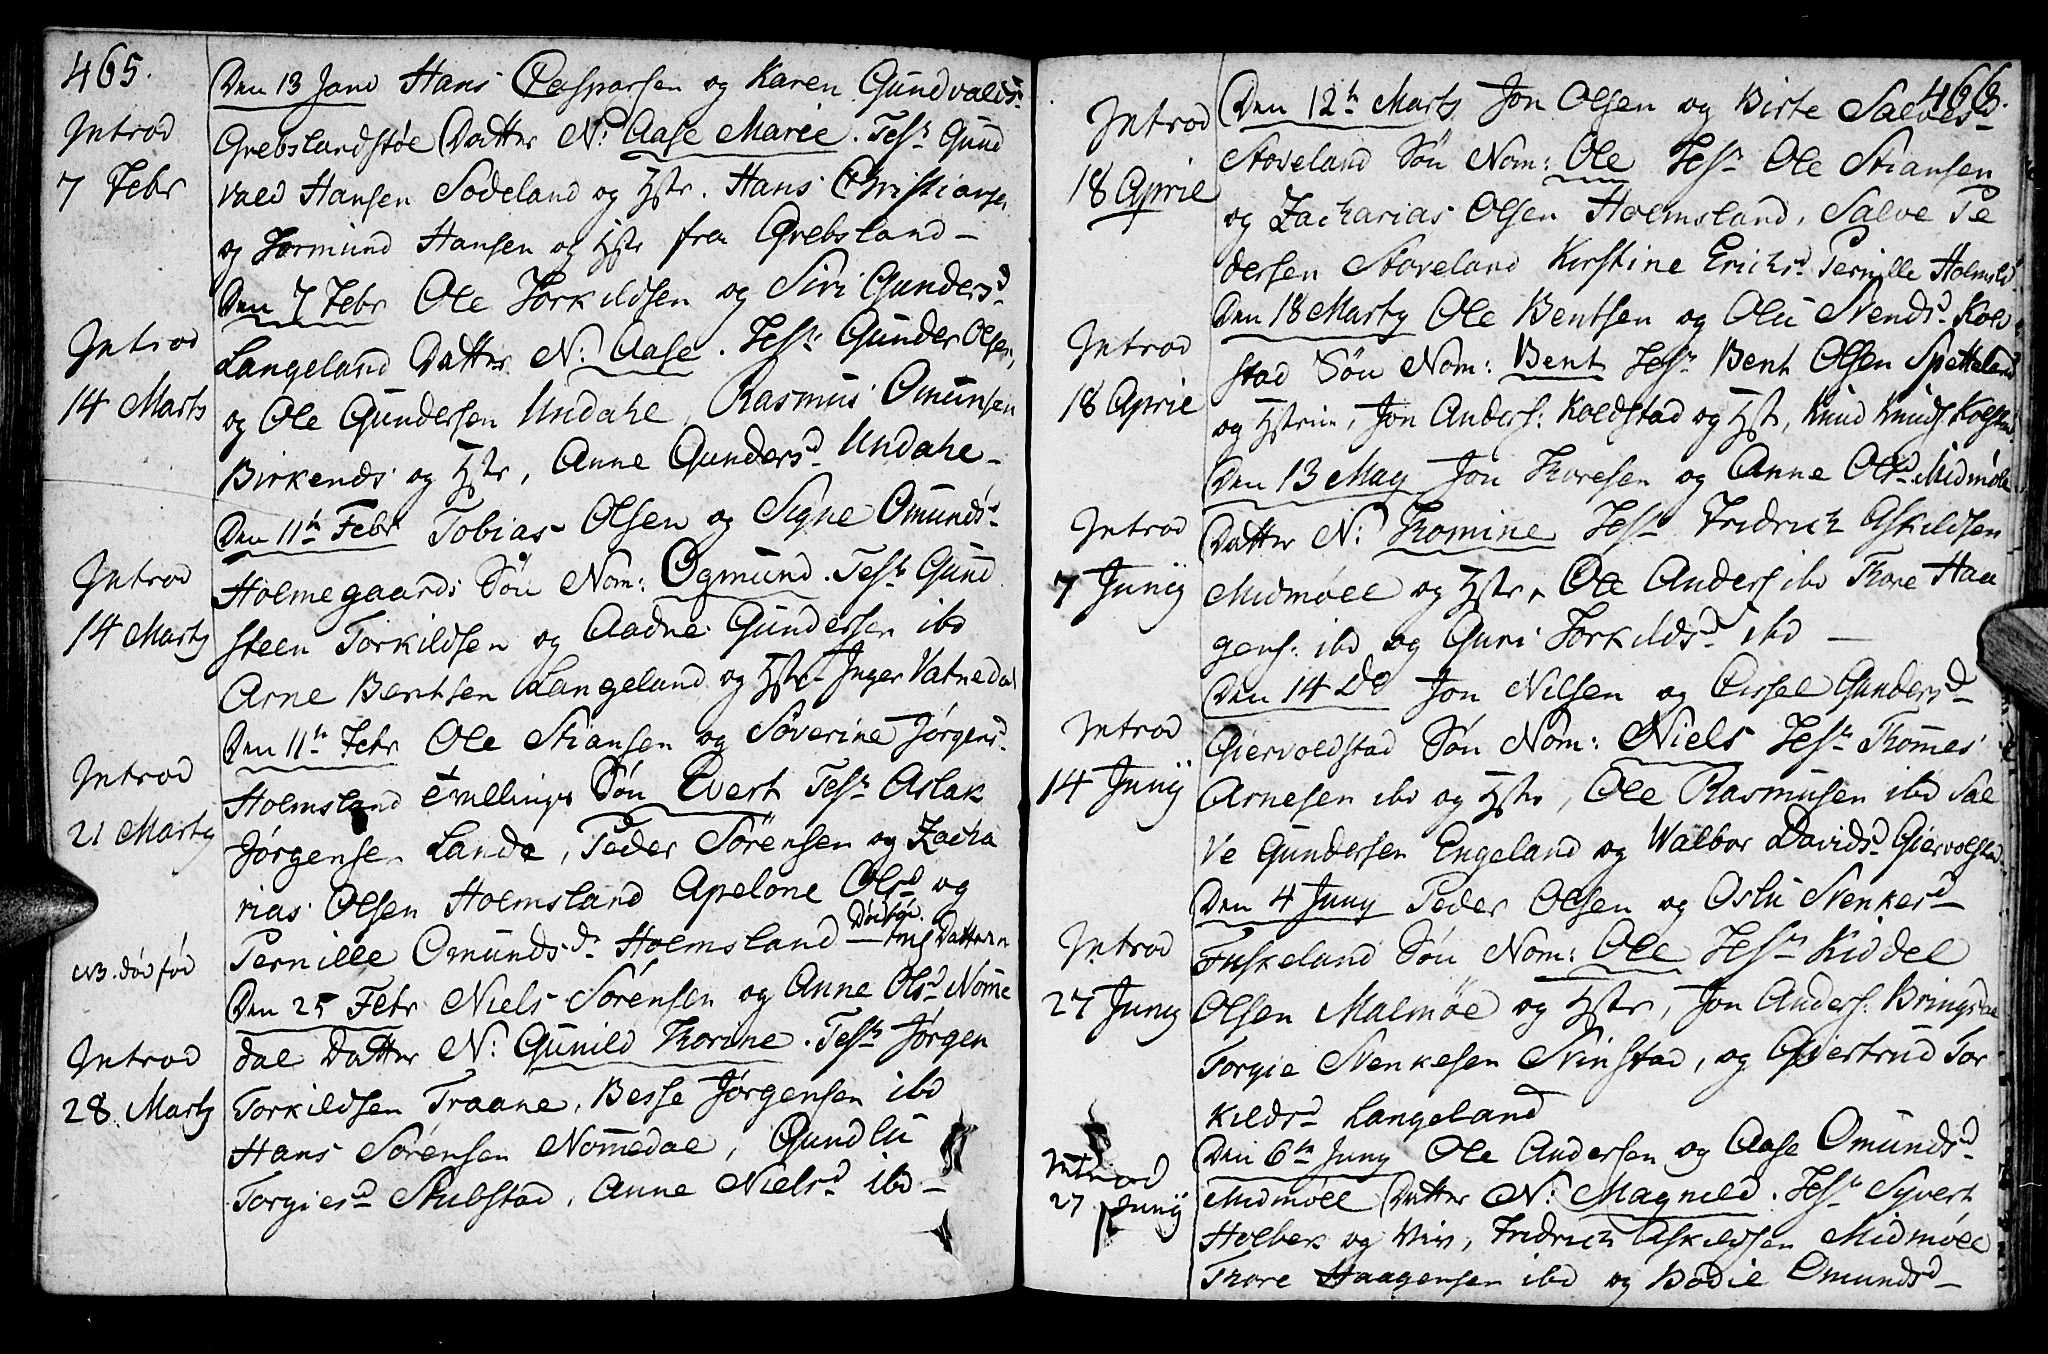 465.
Introd
7 Febr
Den 13 Janv Hans Casparsen og Karen Gundvalds
Grebslandstøe Datter N: Aase Marie. Tesr Gund
vald Hansen Sodeland og Hstr. Hans Christiansen
og Tormund Hansen og Hstr fra Grebsland –
Introd
14 Marts
Den 7 Febr Ole Torkildsen og Siri Gundersd
Langeland Datter N: Aase. Tesr Gunder Olsen,
og Ole Gundersen Undahe, Rasmus Omunsen
Birkends og Hstr, Anne Gundersd Undahe –
Introd
14 Marty
Den 11te Febr Tobias Olsen og Signe Omunds
Holmegaards Søn Nom: Ogmund. Tesr Gund
steen Torkildsen og Aadne Gundersen ibd
Arne Bentsen Langeland og Hstr Inger Vatnedal
Introd
21 Marty
Den 11te Febr Ole Stiansen og Soverine Jørgensd
Holmsland tvillinger Søn Evert Tesr Aslak
Jørgensen Lande, Peder Sørensen og Zacha
rias Olsen Holmsland Apelone Olsd og
Pernille Omundsd Holmsland – Dødfød Datteren
NB. død fød
Introd
28 Marty
Den 25 Febr Niels Sørensen og Anne Olsd Nome
dal Datter N: Gunild Thorine. Tesr Jørgen
Torkildsen Traane, Besse Jørgensen ibd
Hans Sørensen Nomedal, Gundlu
Torgiersd Stubstad, Anne Nielsd ibd –
466.
Introd
18 Aprie
Den 12te Marts Jon Olsen og Birte Salvesd
Stoveland Søn Nom: Ole Tesr Ole Stiansen
og Zacharias Olsen Holmsland, Salve Pe
dersen Stoveland Kirstine Erichsd Pernille Holmsld
Introd
18 Aprie
Den 18 Marty Ole Bentsen og Olu Svendsd Kold
stad Søn Nom: Bent Tesr Bent Olsen Spetteland
og Hstrue, Jon Anders: Koldstad og Hstr, Knud Knuds.
Introd
7 Junij
Den 13 May Jon Thoresen og Anne Olsd Midmøle
Datter N: Thomine Tesr Fridrich Askildsen
Midmøll og Hstr, Ole Anders ibd Thore Haa
gens: ibd og Guri Torkildsd ibd –
Introd
14 Junij
Den 14 Do Jon Nilsen og Cissel Gundersd
Giervoldstad Søn Nom: Niels Tesr Thomes
Arnesen ibd og Hstr, Ole Rasmusen ibd Sal
ve Gundersen Engeland og Walbor Davidsd Giervolstad
Introd
27 Juny
Den 4 Juny Peder Olsen og Oslu Svenkesd
Fuskeland Søn Nom: Ole Tesr Kiddel
Olsen Malmøe og Hstr, Jon Anders. Bringsdal
Torgie Svenkesen Svinstad, og Giertrud Tor
kildsd Langeland
Introd
27 Junij
Den 6te Juny Ole Andersen og Aase Omundsd
Midmøll Datter N: Magnild. Tesr Syvert
Holbek og Viv, Fridrich Askildsen Midmøll
Thore Haagensen ibd og Bodie Omundsd –